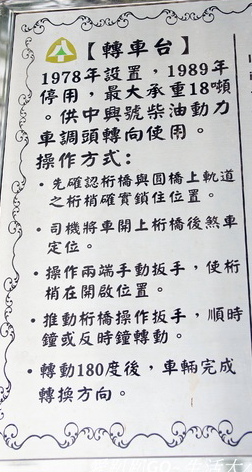 【轉車台】
1978年設置，1989年
停用，最大承重18噸
。供中興號柴油動力
車調頭轉向使用。
操作方式：
·先確認桁橋與圓橋上軌道
之桁梢確實鎖住位置。
·司機將車開上桁橋後煞車
定位。
·操作兩端手動扳手，使桁
梢在開啟位置。
·推動桁橋操作扳手，順時
鐘或反時鐘轉動。
·轉動180度後，車輛完成
轉換方向。